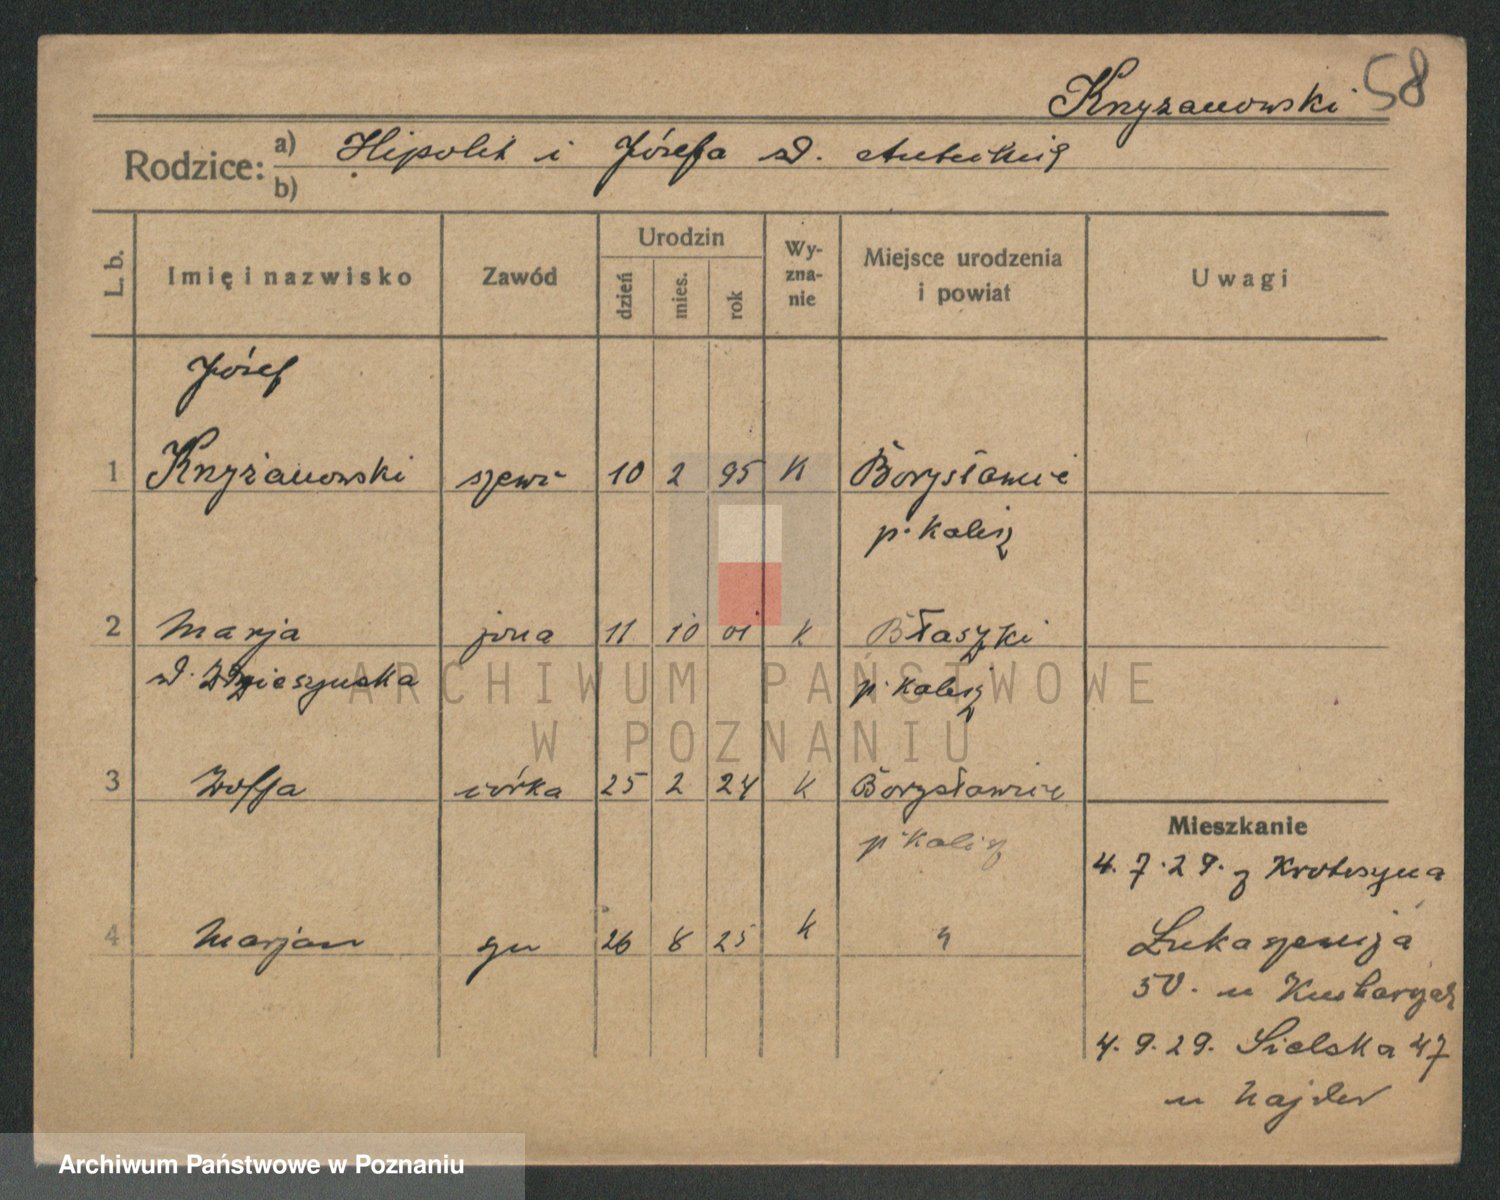 Krzyżanowski 58
Rodzice: a) Hipolit i Józefa d.
b)
L. b. Imię i nazwisko Zawód Urodzin dzień mies. rok Wyznanie Miejsce urodzenia i powiat Uwagi
Józef
1 Krzyżanowski szewc 10 2 95 K Borysławice
p. Kalisz
2 Marja żona 11 10 01 K Błaszki
d. p. Kalisz
3 Zofja córka 25 2 24 K Borysławice
p. Kalisz
Mieszkanie
4. 7. 29. z Krotoszyna
4 Marjan syn 26 8 25 K "
50. u
4. 9. 29. Sielska 47
u Najder
ARCHIWUM PAŃSTWOWE
W POZNANIU
Archiwum Państwowe w Poznaniu